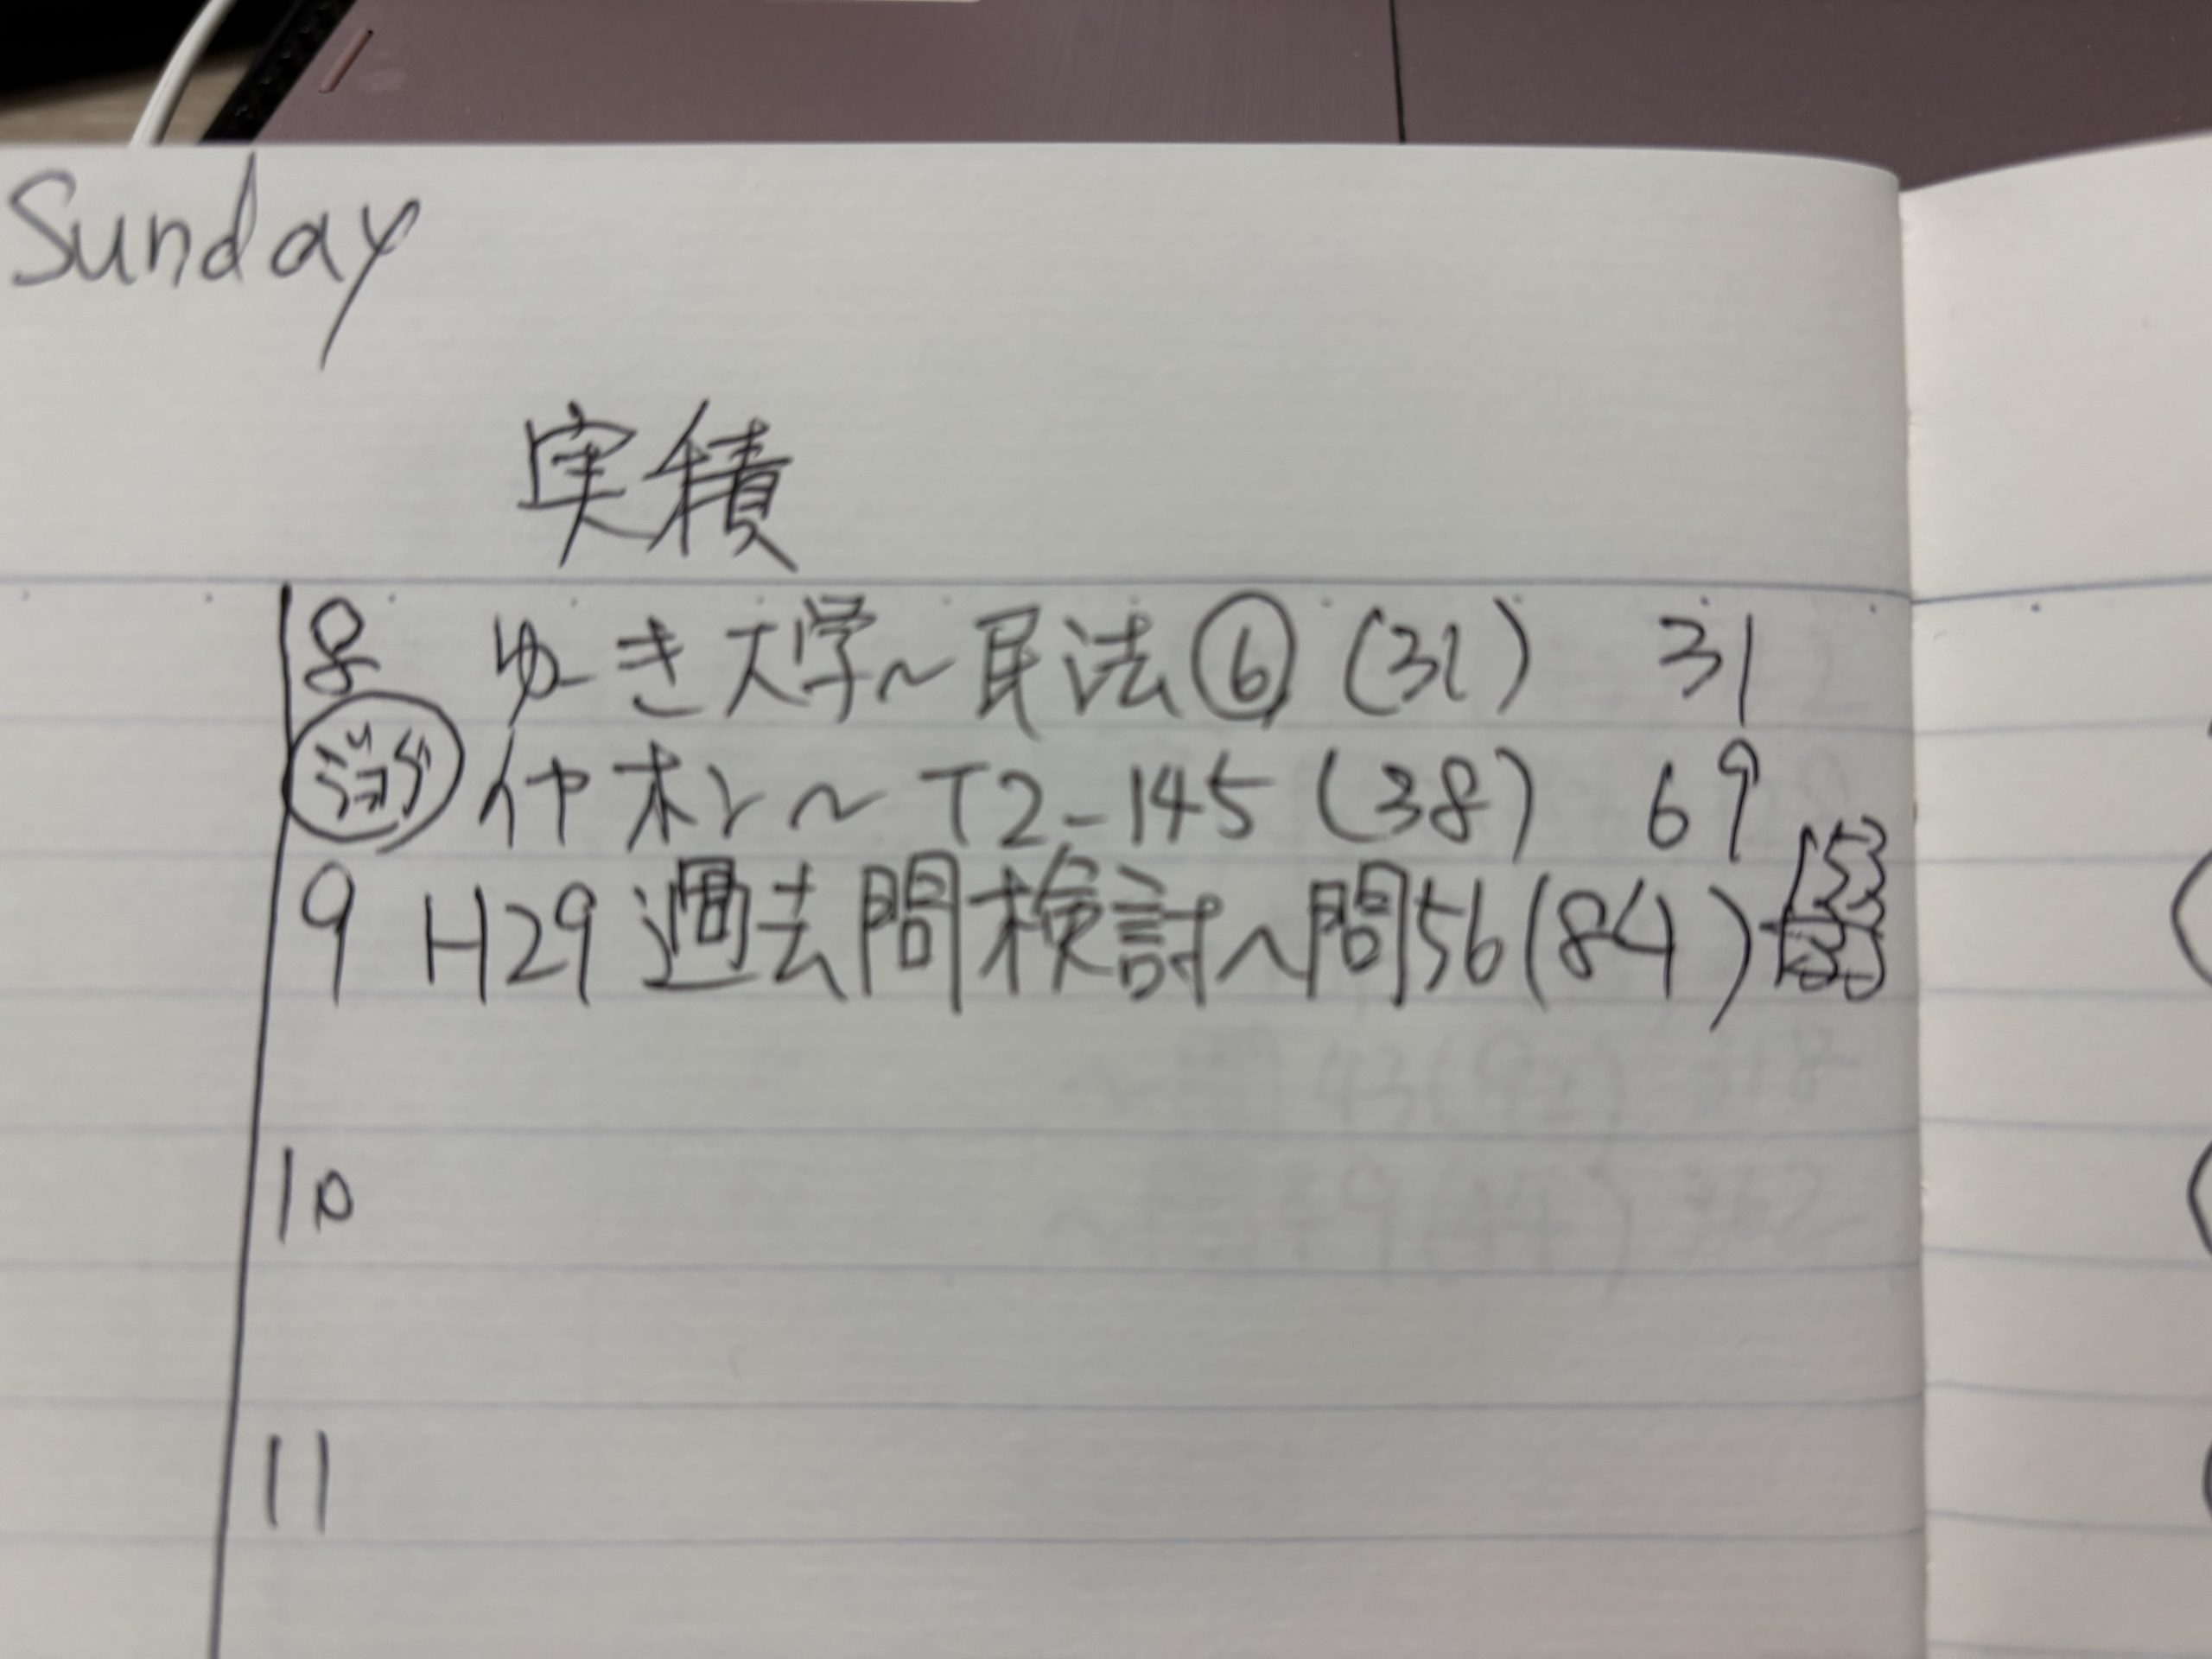 Sunday
実積
8 ゆーき大学〜民法⑥ (31) 31
ジョグ イヤホン〜T2-145 (38) 69
9 H29過去問検討〜問56(84) 153
10
11